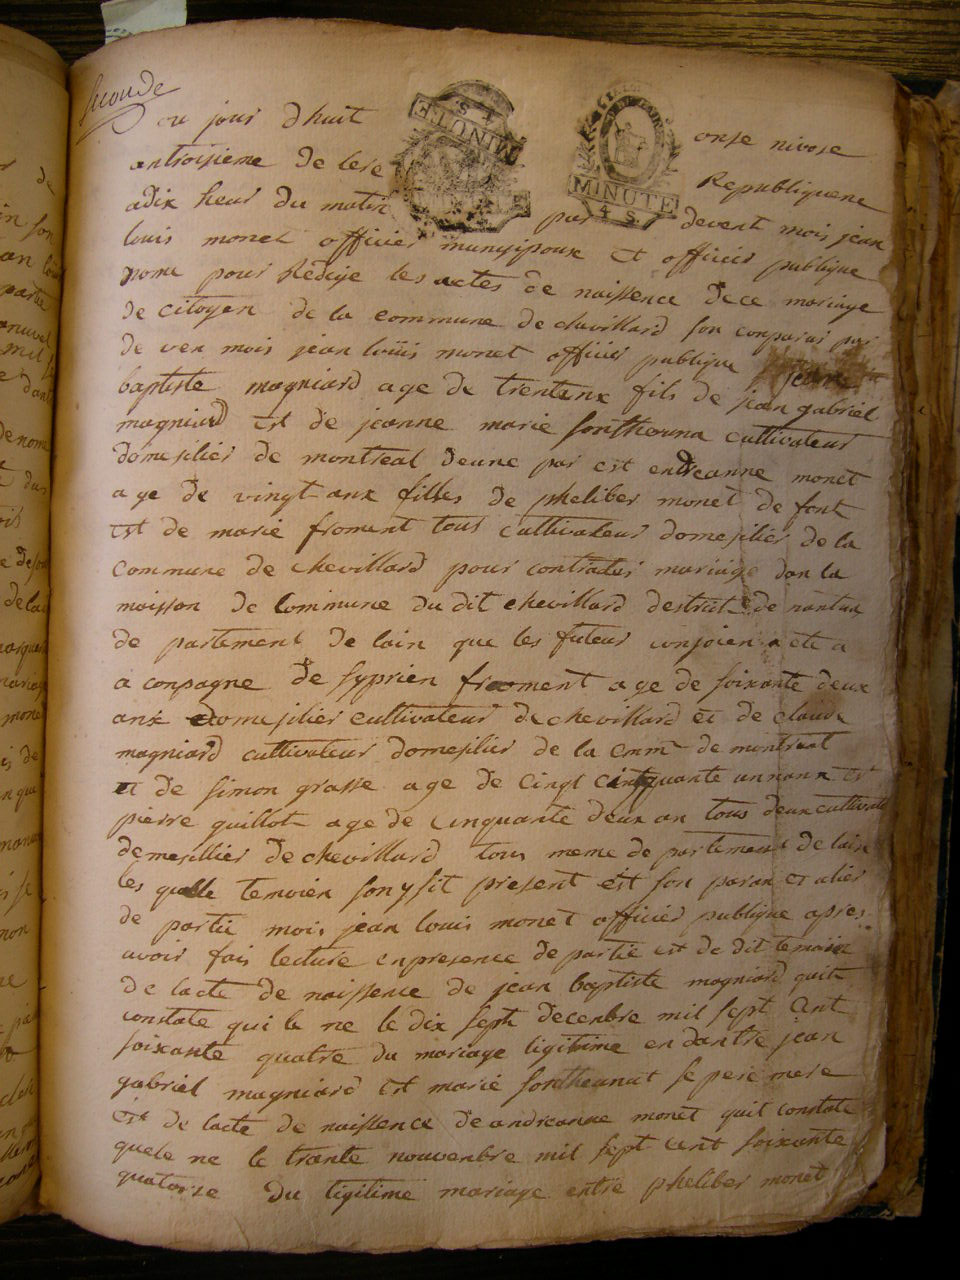 seconde
MINUTE
4 S.
MINUTE
4 S.
ou jour dhuit onse nivose
antroisieme de lere Republiquene
a dix heur du matin par devent mois jean
louis monet officier munysipoux et officié publique
nome pour Rédige les actes de naissence dece mariage
de citoyen de la commune de chevillard son conparus par
de ven mois jean louis monet officié publique jean
baptiste magniard age de trente fils de jean gabriel
magniard est de jeanne marie sontheuna cultivateur
domesiliér de montreal deune par est endreanne monet
age de vingt anx filles de pheliber monet de font
est de marie froment tous cultivateur domesilier de la
commune de chevillard pour contrater mariage dan la
maison de commune du dit chevillard destrict de nantua
de partement de lain que les futeur conjoien ete a
a conpagne de syprien froment age de soixante deux
anx domesilier cultivateur de chevillard et de claude
magniard cultivateur domesilier de la cnme de montreal
et de simon grasse age de cingt cintquante annanx est
pierre guillot age de cinquante deux an tous deux cultivate
demesillier de chevillard tous meme de partement de lain
les quelle temoien son y sit present est son paran et alier
de partie mois jean louis monet officiér publique apres
avoir fais lecture en presence de partie est de dit temoin
de lacte de naissence de jean baptiste magniard quit
constate qui le ne le dix sept decenbre mil sept cent
soixante quatre du mariage ligitime en dantre jean
gabriel magniard est marie sontheunat se pere mere
est de lacte de naissence de andreanne monet quit constate
quele ne le trante nouvenbre mil sept cent soixante
quatorse du ligitime mariage entre pheliber monet